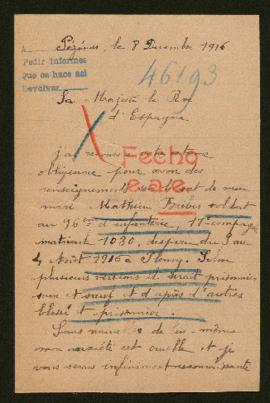 Pézénas, le 8 Décembre 1916
A
Pedir informes
Que se hace así
Devolver
46193
Sa Majesté le Roi
d'Espagne
j'ai recours à votre
obligeance pour avoir des
renseignements de mon
mari Mathieu soldat
au 96me d'infanterie, 11e compagnie
matricule 1030, disparu du
Août 1916 à Fleury. Selon
plusieurs versions il serait prisonnier
et d'après d'autres
blessé et prisonnier.
Sans nouvelles de lui-même
mon anxiété est cruelle et je
vous serais infiniment reconnaissante
Fecho